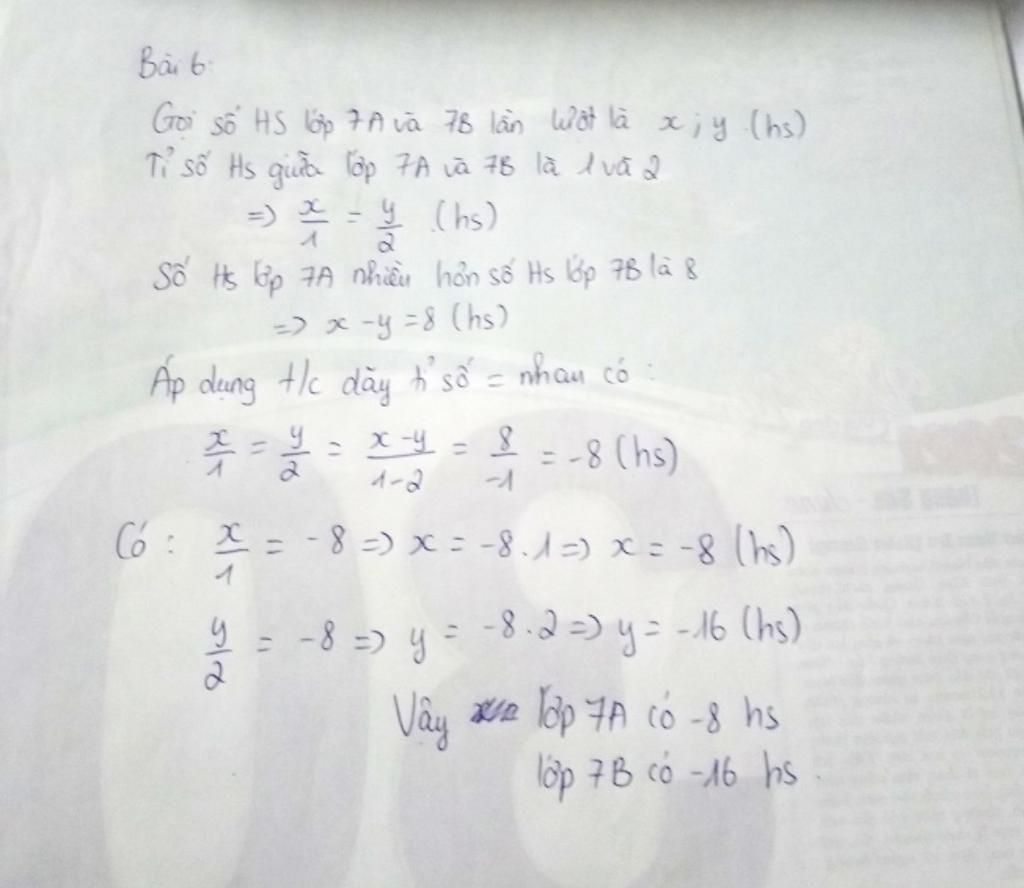 Bài 6:
Gọi số HS lớp 7A và 7B lần lượt là x; y (hs)
Tỉ số Hs giữa lớp 7A và 7B là 1 và 2
=> x/1 = y/2 (hs)
Số Hs lớp 7A nhiều hơn số Hs lớp 7B là 8
=> x - y = 8 (hs)
Áp dụng t/c dãy tỉ số = nhau có:
x/1 = y/2 = (x-y)/(1-2) = 8/-1 = -8 (hs)
Có: x/1 = -8 => x = -8.1 => x = -8 (hs)
y/2 = -8 => y = -8.2 => y = -16 (hs)
Vậy lớp 7A có -8 hs
lớp 7B có -16 hs.